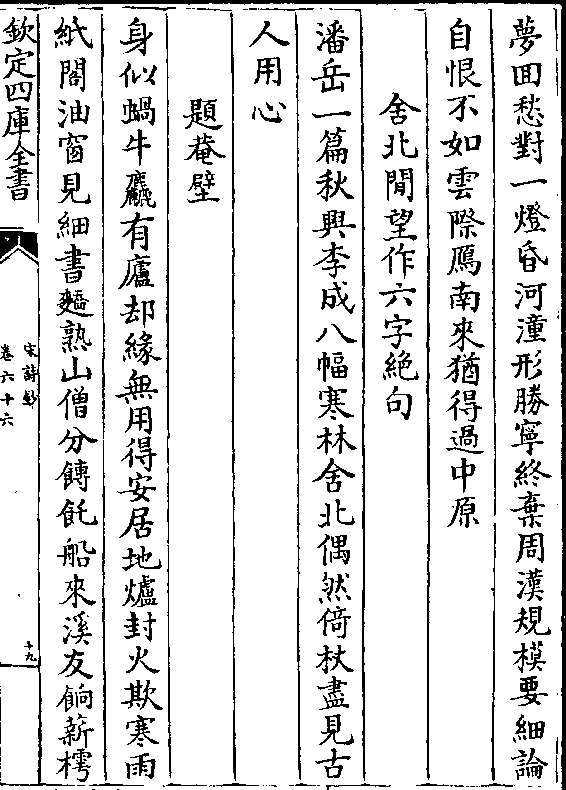 夢囬愁對一燈昏河潼形勝寧終棄周漢規模要細論
自恨不如雲際鴈南來猶得過中原
舍北閒望作六字絶句
潘岳一篇秋興李成八幅寒林舍北偶然倚杖盡見古
人用心
題菴壁
身似蝸牛麤有廬却緣無用得安居地爐封火欺寒雨
紙閤油窗見細書麵熟山僧分餺飥船來溪友餉薪樗
欽定四庫全書
宋詩鈔
卷六十六
十九